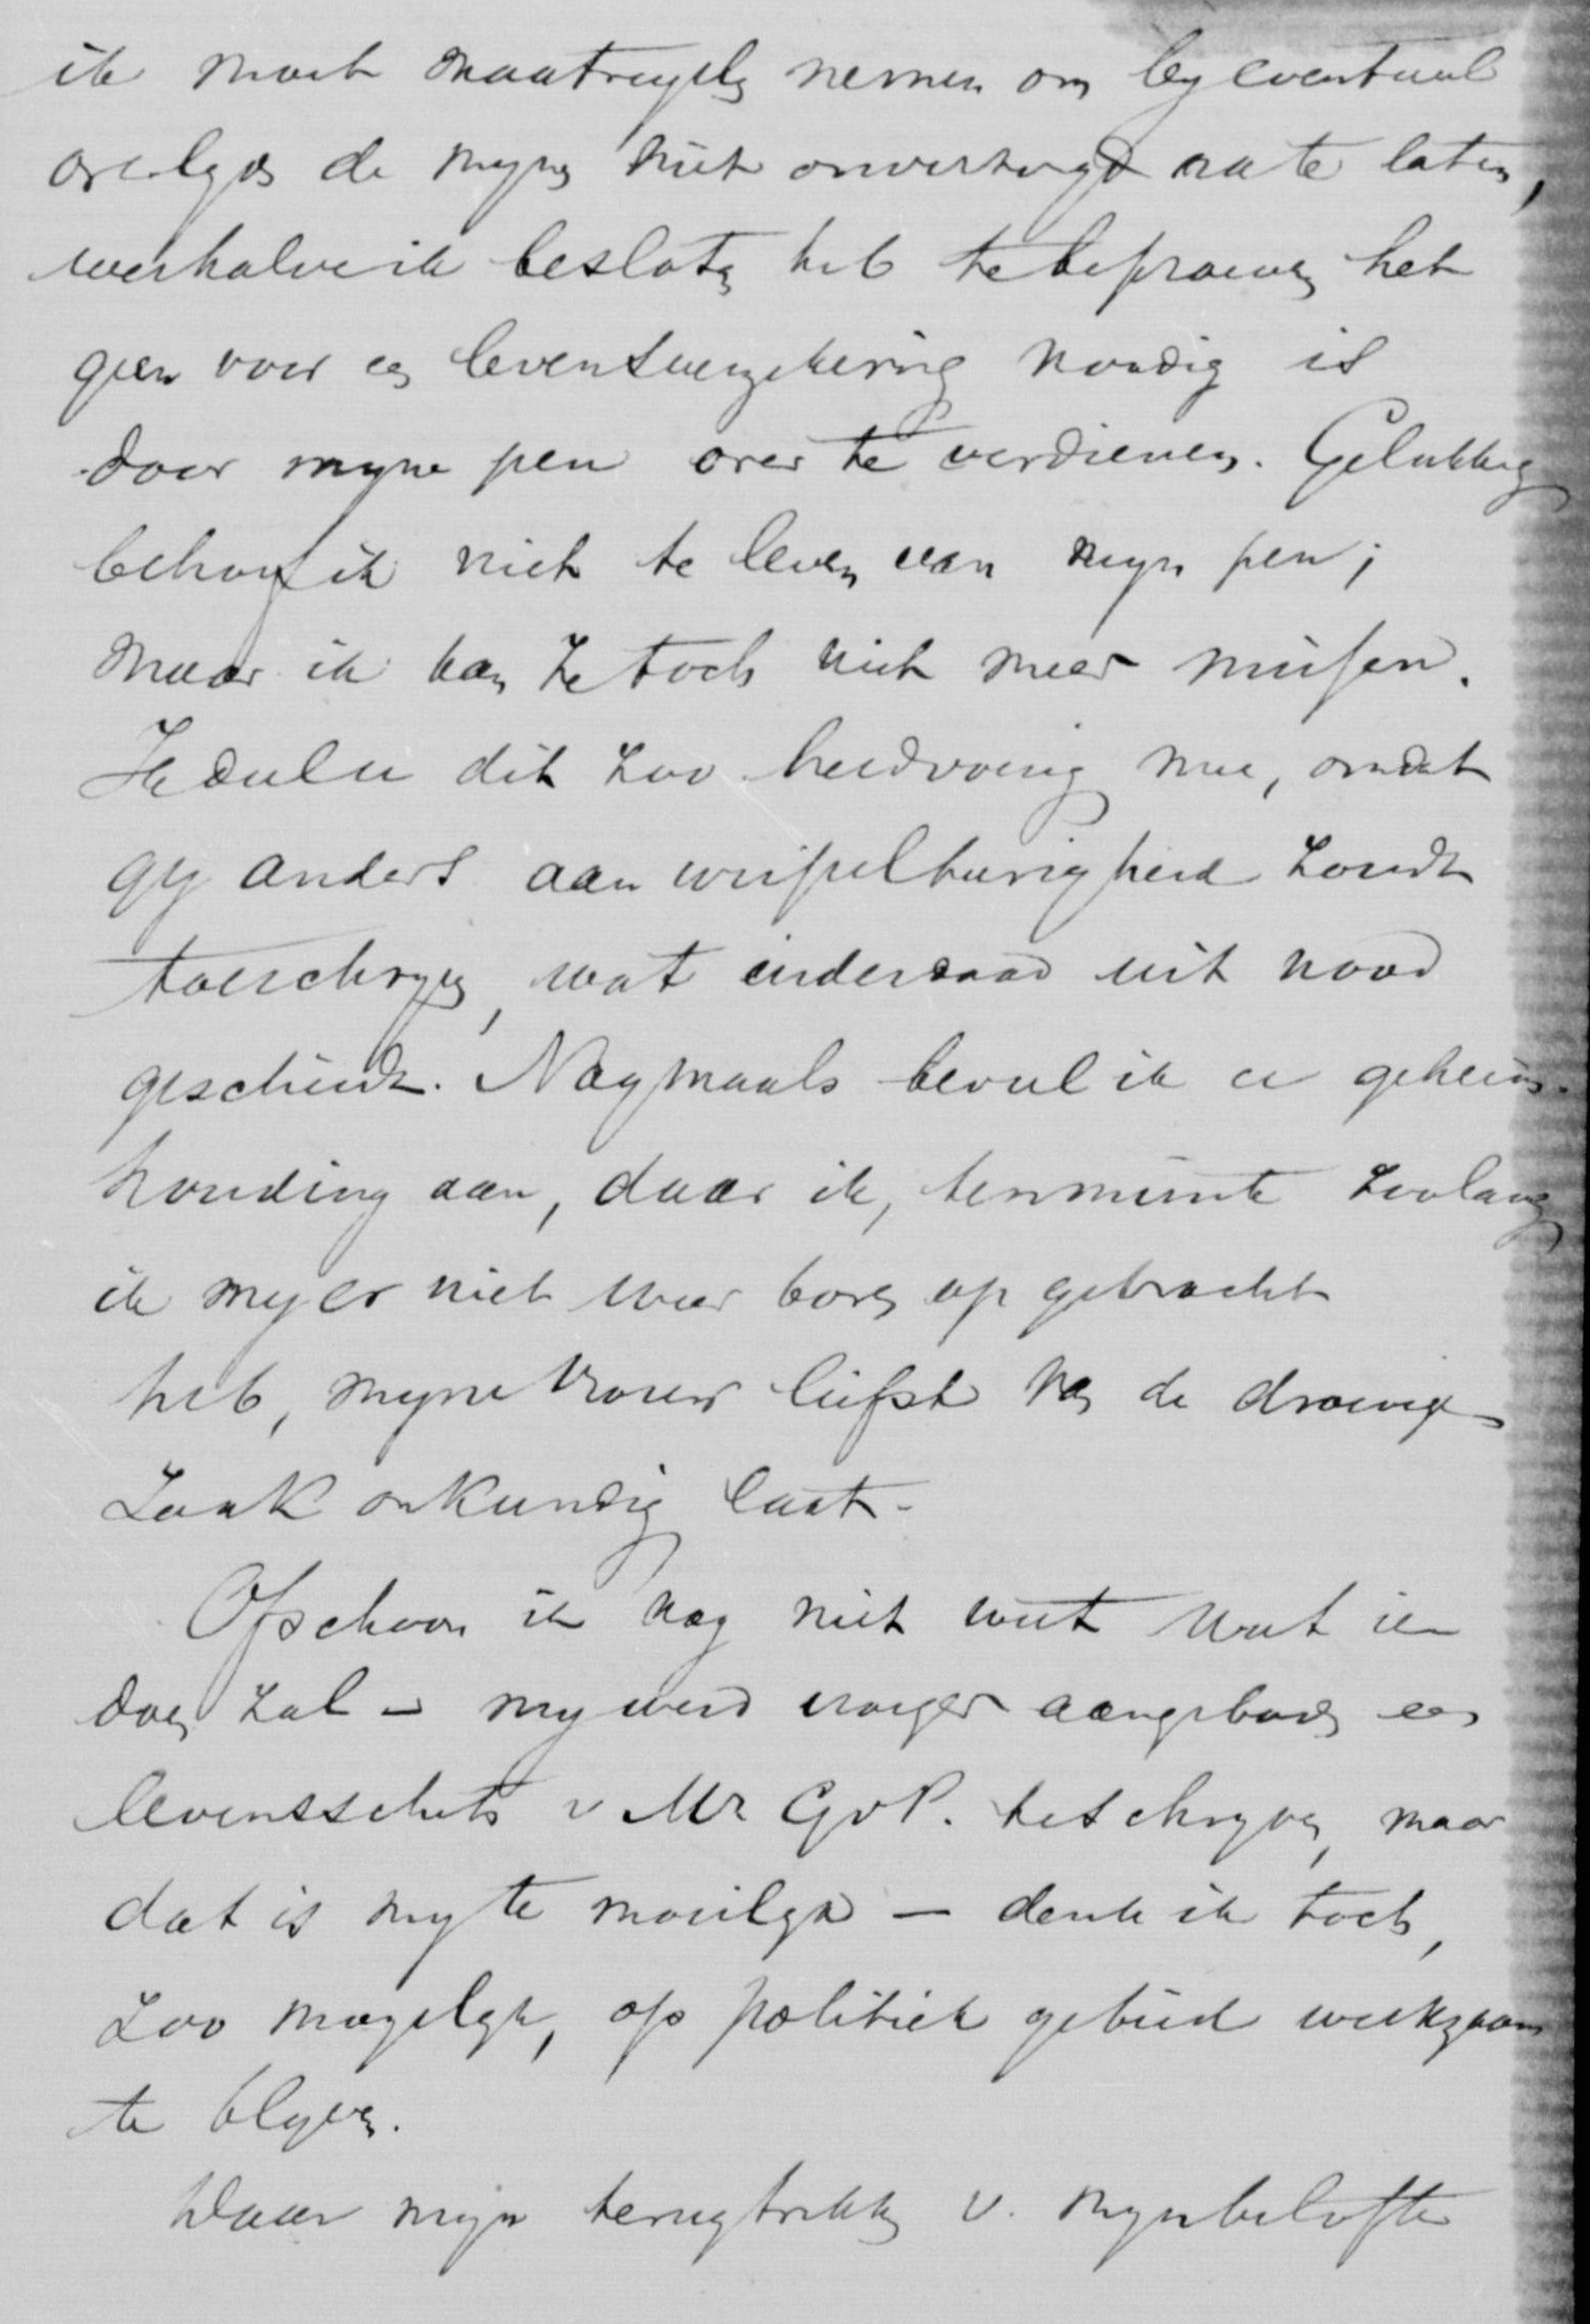 ik moet maatregelen nemen om by eventueel
overlyden de mynen niet onverzorgd na te laten,
weshalve ik besloten heb te beproeven het
geen voor een levensverzekering noodig is
door myne pen over te verdienen. Gelukkig
behoef ik niet te leven van myn pen;
maar ik kan ze toch niet meer missen.
Ik deel u dit zoo heedvoerig mee, omdat
gy anders aan wispelturigheid zoudt
toeschryven, wat inderdaad uit nood
geschiedt. Nogmaals beveel ik u geheim-
houding aan, daar ik, tenminste zoolang
ik my er niet weer boven op gebracht
heb, myne vrouw liefst van de droevige
zaak onkundig laat.
Ofschoon ik nog niet weet wat ik
doen zal – my werd vroeger aangeboden een
levensschets v Mr GvP. te schryven, maar
dat is my te moeilyk – denk ik toch,
zoo mogelyk, op politiek gebied werkzaam
te blyven.
Daar myn terugtrekken v. myn belofte